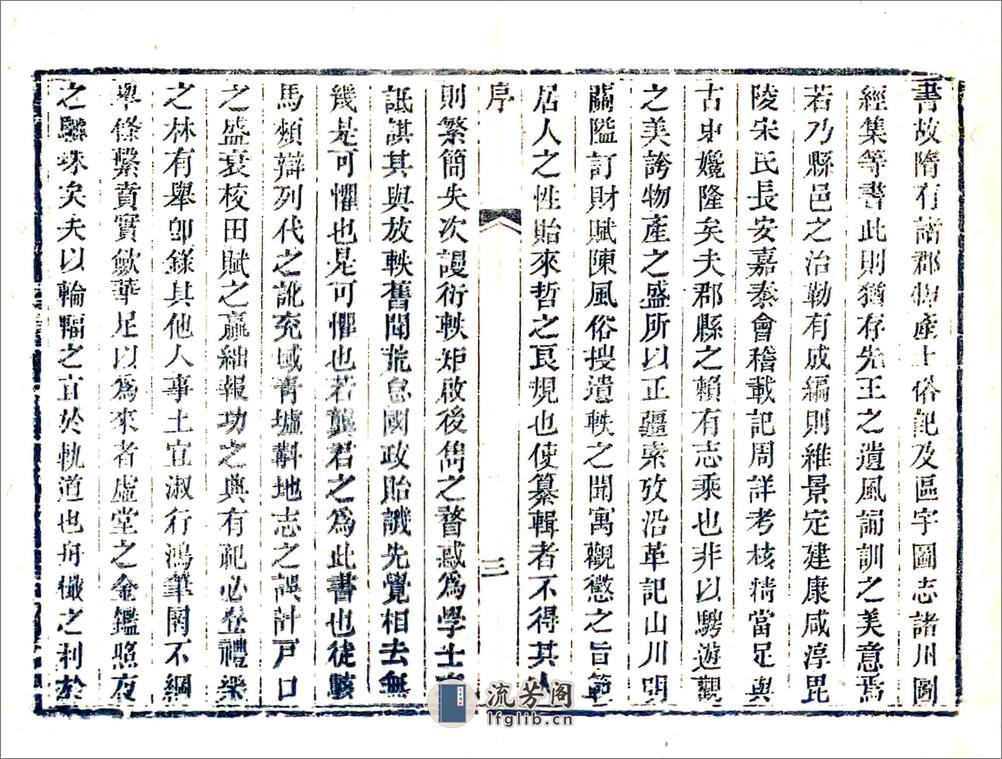 書故隋有諸郡物產土俗記及區宇圖志諸川圖
經集等書此則猶存先王之遺風誦訓之美意焉
若乃縣邑之治勒有成編則維景定建康咸淳毘
陵宋氏長安嘉泰會稽載記周詳考核精當足與
古史媲隆矣夫郡縣之賴有志乘也非以騁遊觀
之美誇物產之盛所以正疆索攷沿革記山川明
扃隘訂財賦陳風俗搜遺軼之聞寓觀懲之旨範
居人之性貽來哲之良規也使纂輯者不得其人
序
三
則繁簡失次謾衍軼矩啟後雋之瞀惑為學士
詆諆其與放軼舊聞荒怠國政貽譏先覺相去無
幾是可懼也是可懼也若龔君之為此書也徒駭
馬頰辯列代之訛兖域青墟斠地志之誤計戸口
之盛衰核田賦之贏絀報功之典有祀必登禮樂
之林有舉卽錄其他人事土宜淑行鴻筆罔不綱
舉條繫賁實斂華足以為來者虛堂之金鑑照夜
之驪珠矣夫以輪輻之宜於軌道也舟檝之利於
流芳阁
lfglib.cn